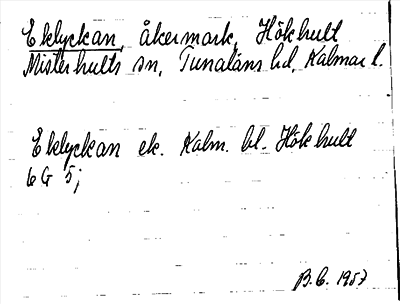 Eklyckan, åkermark, Hökhult
Misterhults sn, Tunaläns hd, Kalmar l.
Eklyckan ek. Kalm. bl. Hökhult
6 G 5;
B.C. 1957